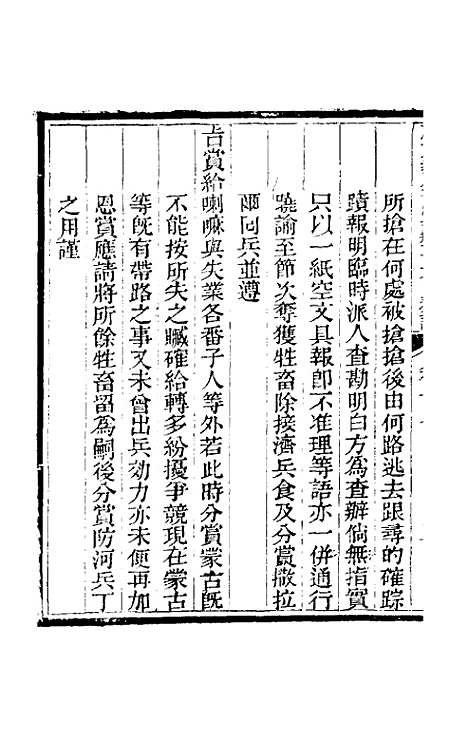 所搶在何處被搶搶後由何路逃去跟尋的確踪
蹟報明臨時派人查勘明白方為查辦倘無指實
只以一紙空文具報卽不准理等語亦一併通行
曉諭至節次奪獲牲畜除接濟兵食及分賞撒拉
爾回兵並遵
旨賞給喇嘛與失業各番子人等外若此時分賞蒙古旣
不能按所失之贓確給轉多紛擾爭競現在蒙古
等旣有帶路之事又未曾出兵効力亦未便再加
恩賞應請將所餘牲畜留為嗣後分賞防河兵丁
之用謹